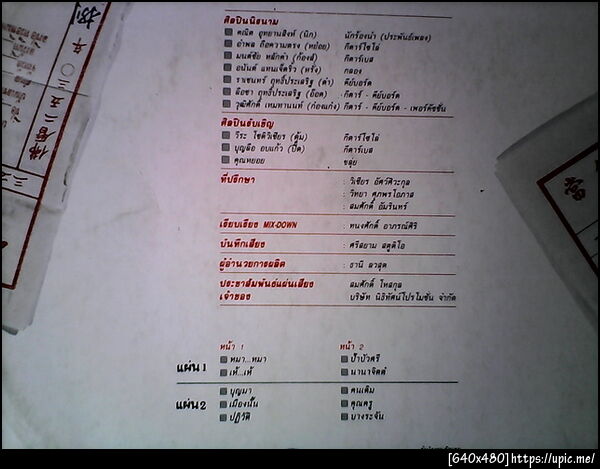 ศิลปินนิรนาม
คณิต อุทยานสิงห์ (นิก) นักร้องนำ (ประพันธ์เพลง)
อำพล ถือความตรง (หย่อย) กีตาร์โซโล่
มนต์ชัย หลักดำ (ก้องส์) กีตาร์เบส
อนันต์ แทนเจ็ดริ้ว (หรั่ง) กลอง
ราเชนทร์ ฤทธิ์ประเสริฐ (ดำ) คีย์บอร์ด
ลือชา ฤทธิ์ประเสริฐ (อ๊อด) กีตาร์ - คีย์บอร์ด
วุฒิศักดิ์ เหมทานนท์ (ก่องแก่ง) กีตาร์ - คีย์บอร์ด - เพอร์คัชชั่น
ศิลปินรับเชิญ
วีระ โชติวิเชียร (ตุ้ม) กีตาร์โซโล่
บุญลือ อบแก้ว (ปี๊ด) กีตาร์เบส
คุณหยอย ขลุ่ย
ที่ปรึกษา : วิเชียร อัศว์ศิวะกุล
: วิทยา ศุภพรโอภาส
: สมศักดิ์ อัมรินทร์
เรียบเรียง MIX-DOWN : ทนงศักดิ์ อาภรณ์ศิริ
บันทึกเสียง : ศรีสยาม สตูดิโอ
ผู้อำนวยการผลิต : ธานี
ประชาสัมพันธ์แผ่นเสียง สมศักดิ์ โหสกุล
เจ้าของ บริษัท นิธิทัศน์โปรโมชั่น จำกัด
หน้า 1 หน้า 2
แผ่น 1
หมา...หมา ป้าบัวศรี
เห้...เห้ นานาจิตตํ
แผ่น 2
บุญมา คนเดิม
เมืองนั้น คุณครู
ปฏิวัติ บางระจัน
[640x480]https://upic.me/